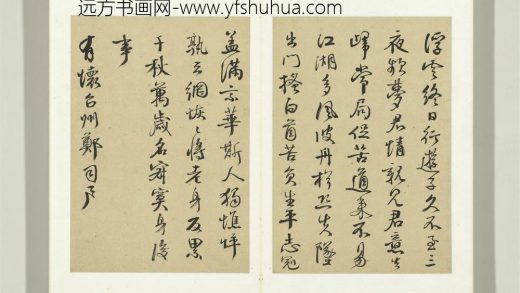 远方书画网-www.yfshuhua.com
浮雲終日行遊子久不至三
夜頻夢君情親見君意告
歸常局促苦道來不易
江湖多風波舟楫恐失墜
出門搔白首苦負生平志冠
蓋滿京華斯人獨憔悴
孰云網恢〻將老身反累
千秋萬歲名寂寞身後
事
有懷台州鄭司户